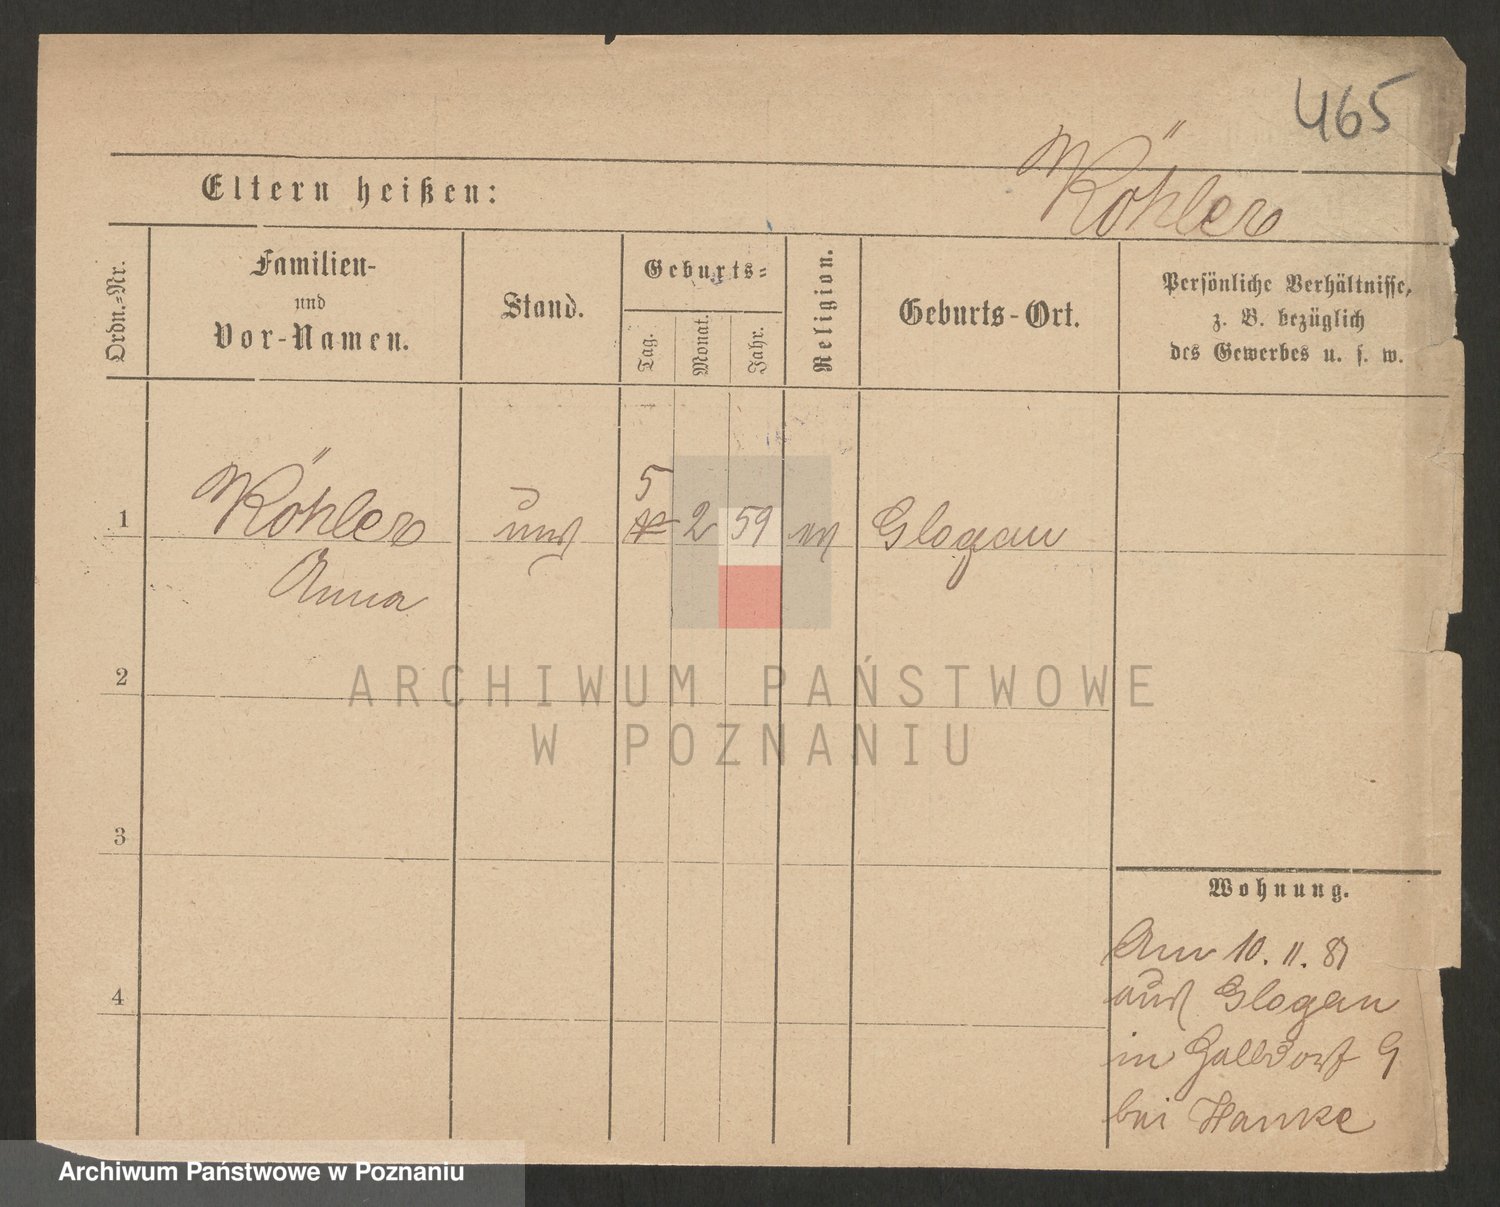 465
Köhler
Eltern heißen:
Ordn.-Nr.
Familien-
und
Vor-Namen.
Stand.
Geburts-
Tag.
Monat.
Jahr.
Religion.
Geburts-Ort.
Persönliche Verhältnisse,
z. B. bezüglich
des Gewerbes u. s. w.
5
1 Köhler 2 59 Glogau
Anna
2
3
4
Wohnung.
10. 11. 81
aus Glogau
in
bei Hanke
ARCHIWUM PAŃSTWOWE
W POZNANIU
Archiwum Państwowe w Poznaniu